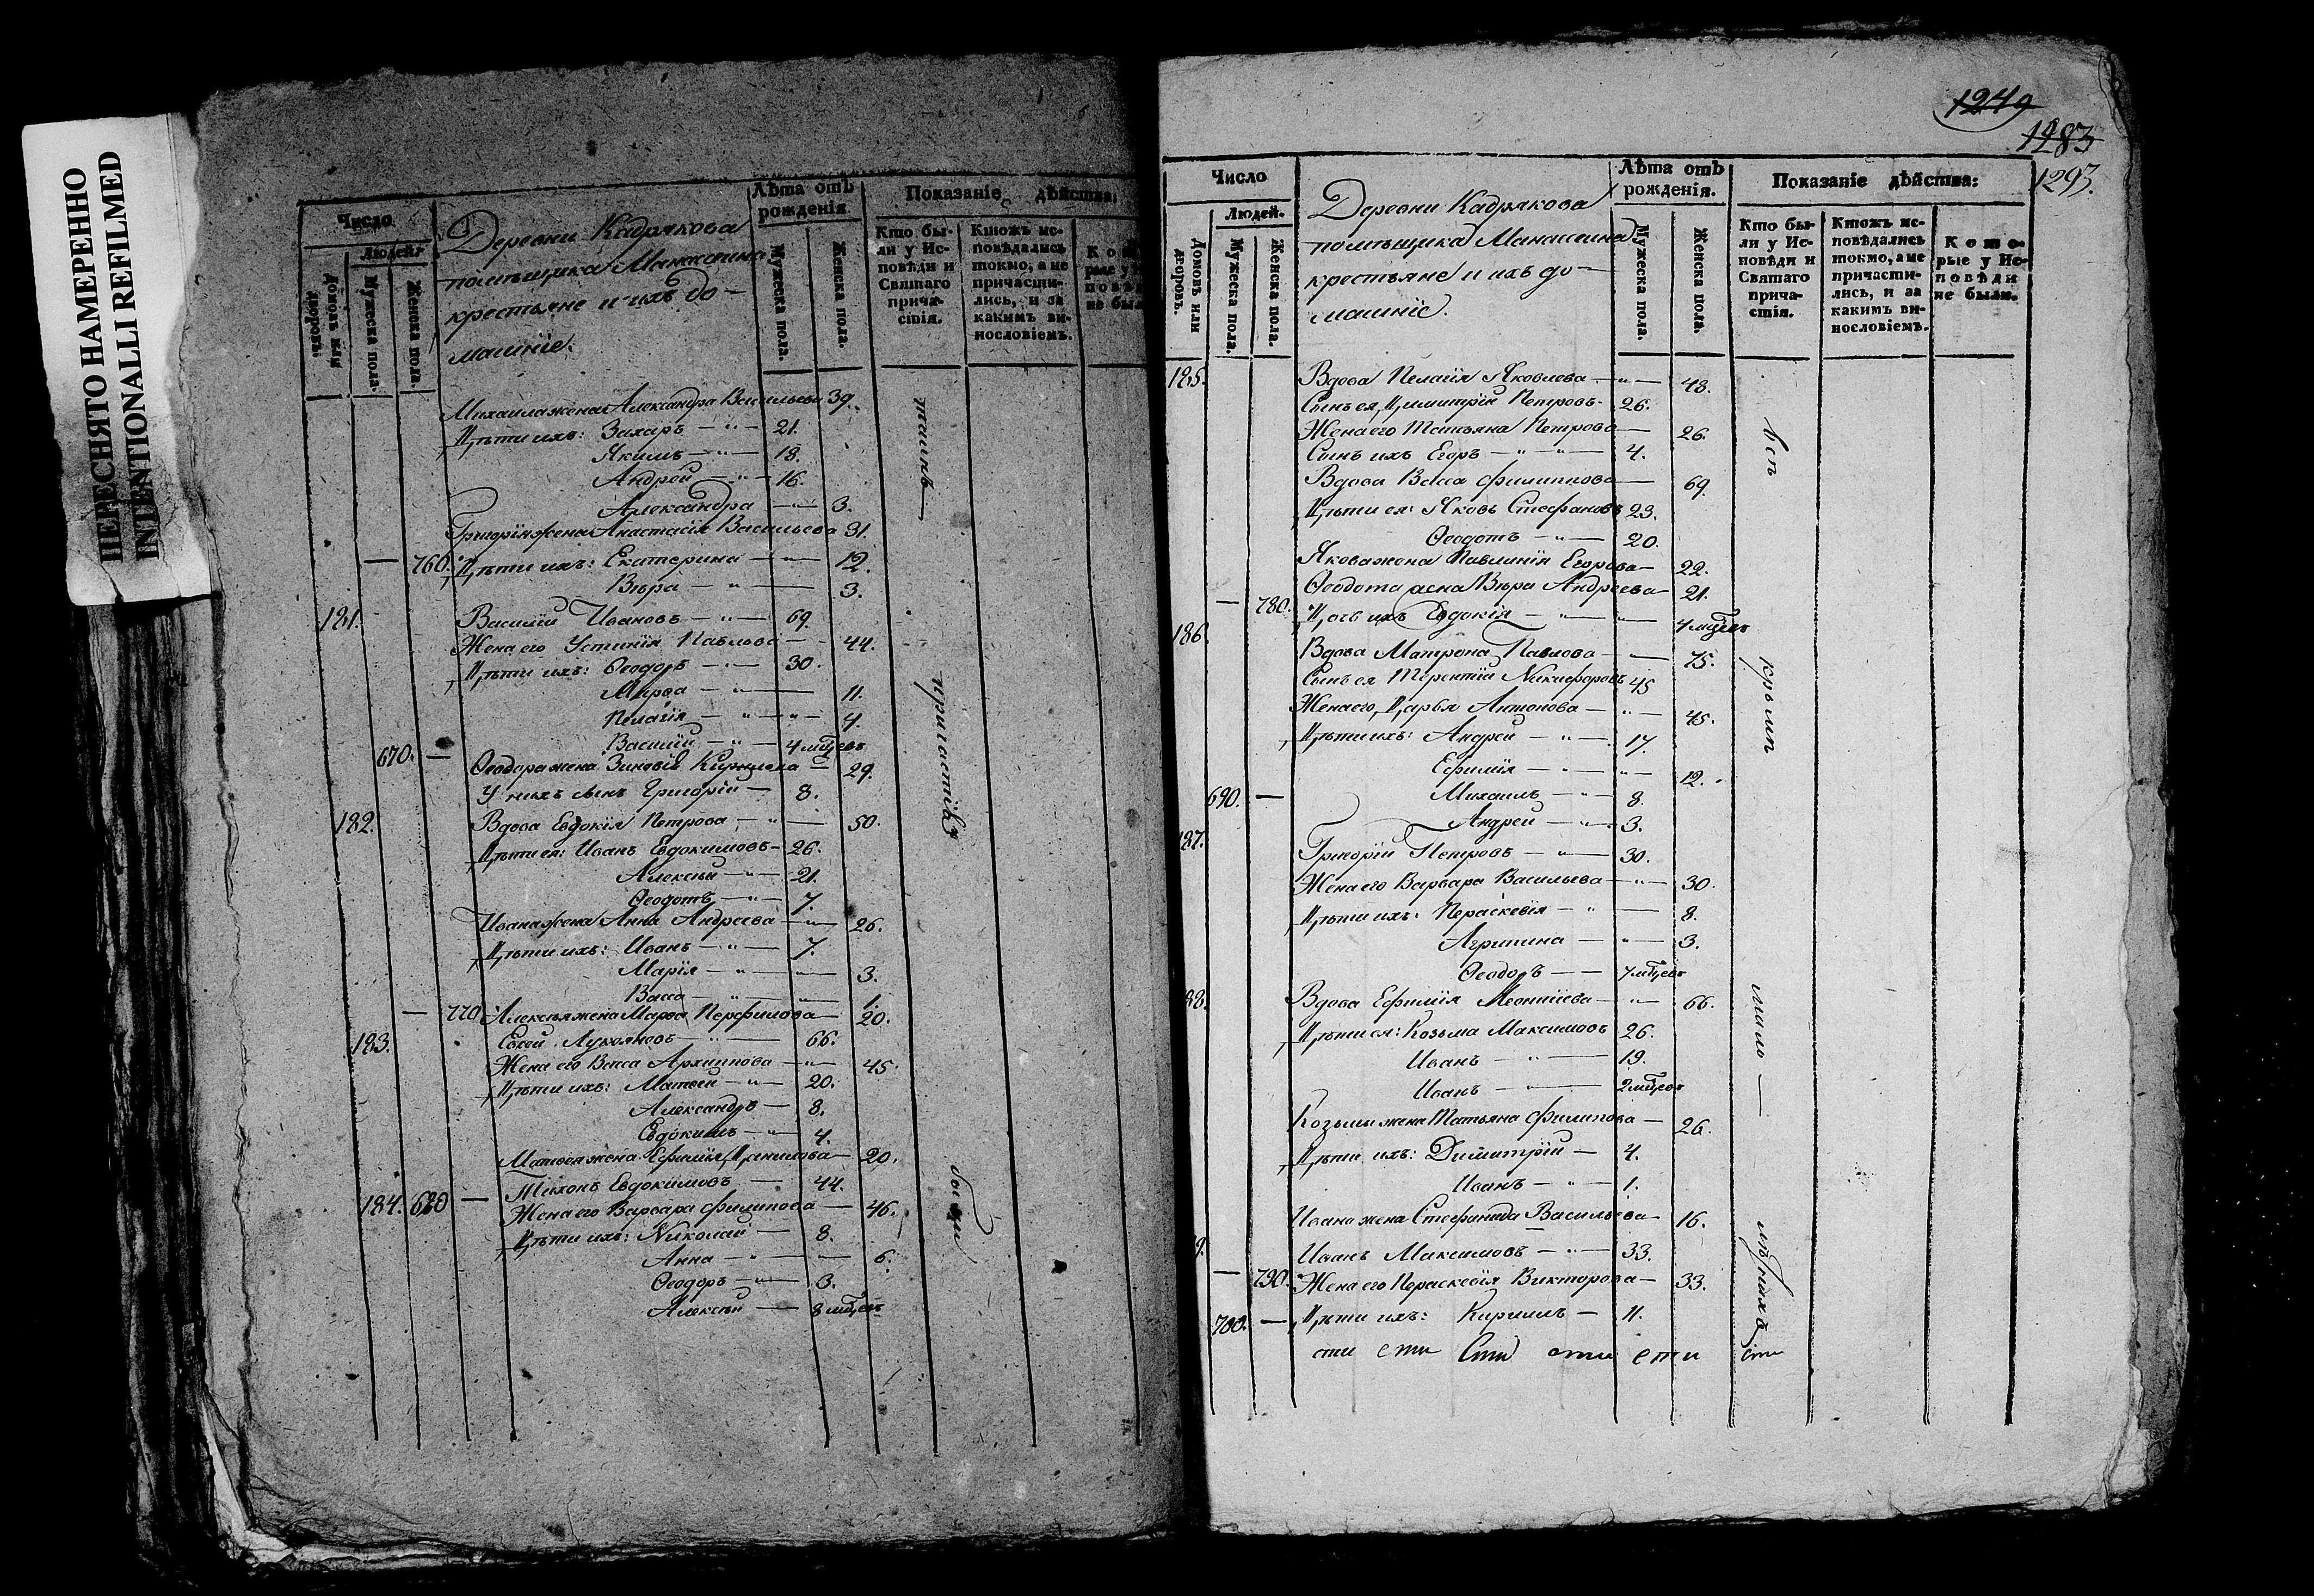 ПЕРЕСНЯТО НАМЕРЕННО
INTENTIONALLI REFILMED
Число
Людей.
Домовъ или дворовъ.
Мужеска пола.
Женска пола.
Деревни Кадрякова
помѣщика Манасеина
крестьяне и ихъ до-
машніе.
Лѣта отъ рожденія
Мужеска пола.
Женска пола.
Показаніе дѣйства:
Кто бы-
ли у Ис-
повѣди и
Святаго
прича-
стія.
Ктожъ ис-
повѣдались
токмо, а не
причасти-
лись, и за
какимъ ви-
нословіемъ.
Михаила жена Александра Васильева 39.
Дѣти ихъ: Захаръ — " — 21.
Якимъ — " — 18.
Андрей — " — 16.
Александра — " — 3.
Григорія жена Анастасія Васильева 31.
— 760. Дѣти ихъ: Екатерина — " — 12.
Вѣра — " — 3.
181. Василій Ивановъ — " — 69.
Жена его Устинія Павлова — 44.
Дѣти ихъ: Ѳеодоръ — " — 30.
Марѳа — " — 11.
Пелагія — " — " — 4.
Василій — " — 4 мцевъ
670. — Ѳеодора жена Зиновія Кирилова — 29.
У нихъ сынъ Григорій — 8.
182. Вдова Евдокія Петрова — " — 50.
Дѣти ея: Иванъ Евдокимовъ — 26.
Алексѣй — " — 21.
Ѳеодотъ — " — 7.
Ивана жена Анна Андреева — " — 26.
Дѣти ихъ: Иванъ — " — 7.
Марія — " — " — 3.
Васса — " — " — 1.
— 770. Алексѣя жена Марѳа Перфилова — 20.
183. Евсей Лукояновъ — " — 66.
Жена его Васса Архиппова — " — 45.
Дѣти ихъ: Матвей — " — 20.
Александръ — 8.
Евдокимъ — " — 4.
Матвея жена Ефимія Данилова — 20.
184. 680 — Тихонъ Евдокимовъ — 44.
Жена его Варвара Филипова — 46.
Дѣти ихъ: Николай — 8.
Анна — " — 6.
Ѳеодоръ — " — 3.
Алексѣй — 8 мцевъ
причастія
были
1249
1283
1293.
Число
Людей.
Домовъ или дворовъ.
Мужеска пола.
Женска пола.
Деревни Кадрякова
помѣщика Манасеина
крестьяне и ихъ до-
машніе.
Лѣта отъ рожденія.
Мужеска пола.
Женска пола.
Показаніе дѣйства:
Кто бы-
ли у Ис-
повѣди и
Святаго
прича-
стія.
Ктожъ ис-
повѣдались
токмо, а не
причасти-
лись, и за
какимъ ви-
нословіемъ.
Кото-
рые у Ис-
повѣди
не были.
185. Вдова Пелагія Яковлева — " — 48.
Сынъ ея Димитрій Петровъ — 26.
Жена его Татьяна Петрова — 26.
Сынъ ихъ Егоръ — " — " — 4.
Вдова Васса Филиппова — 69.
Дѣти ея: Яковъ Стефановъ 23.
Ѳеодотъ — " — 20.
Якова жена Павлинія Егорова — 22.
Ѳеодота жена Вѣра Андреева — 21.
— 780. Дочь ихъ Евдокія — " — 4 мцевъ
186. Вдова Матрона Павлова — 75.
Сынъ ея Терентій Никифоровъ 45
Жена его Дарья Антонова — " — 45.
Дѣти ихъ: Андрей — " — 17.
Ефимія — " — " — 12.
690. — Михаилъ — " — 8.
Андрей — " — 3.
187. Григорій Петровъ — " — 30.
Жена его Варвара Васильева — " — 30.
Дѣти ихъ: Пераскевія — " — 8.
Агрипина — " — 3.
Ѳеодоръ — — 7 мцевъ
88. Вдова Ефимія Леонтіева — " — 66.
Дѣти ея: Козьма Максимовъ 26.
Иванъ — " — 19.
Иванъ — 2 мцевъ
Козьмы жена Татьяна Филипова — 26.
Дѣти ихъ: Димитрій — 4.
Иванъ — " — 1.
Ивана жена Стефанида Васильева — 16.
9. Иванъ Максимовъ — " — 33.
— 790. Жена его Пераскевія Викторова — 33.
700. — Дѣти ихъ: Кирилъ — 11.
сти сти сти сти сти сти
всѣ
кромѣ
мало —
лѣтнихъ